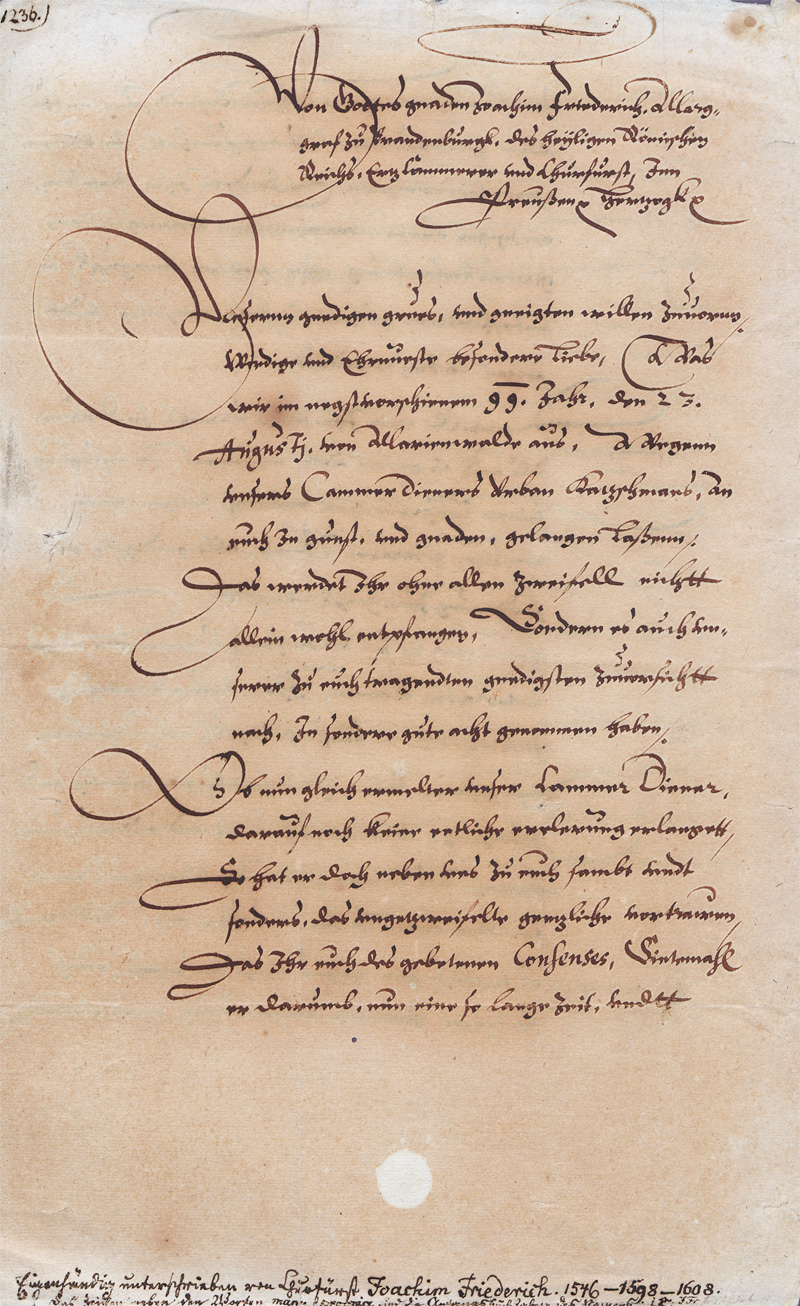 1236.)
Von Gottes gnaden Joachim Friederich, Marg-
graf zu Brandenburgk, des heyligen Römischen
Reichs, Ertz Cämmerer und Churfurst, Inn
Preußen Hertzogk
Unsernn gnedigen grues, und geneigten willen zuvornn,
Wirdige und Ehrnveste besondere Liebe, Was
wir im negst vorschienenn 99. Jahr, den 23.
Augustj. von Marienwalde aus, Wegenn
unsers Cammer Dieners Urban Katzschmans, An
euch in gunst, und gnaden, gelangen laßenn,
Das werdet Ihr ohne allen zweifell nichtt
allein wohl entpfangen, Sondern es auch un-
serer zu euch tragendten gnedigsten zuvorsichtt
nach, In sondere gute acht genommen haben,
Ob nun gleich ermelter unser Cammer Diener,
darauf noch keine entliche ercleerung erlangett,
So hat er doch neben uns zu euch sambt undt
sonders, das ungetzweifelte gentzliche vortrauen,
Das Ihr euch des gebetenen Consenses, Sintemahl
er darumb, nun eine so lange Zeit, undtt
Eigenhändig unterschrieben von Churfürst Joachim Friederich. 1546–1598–1608.